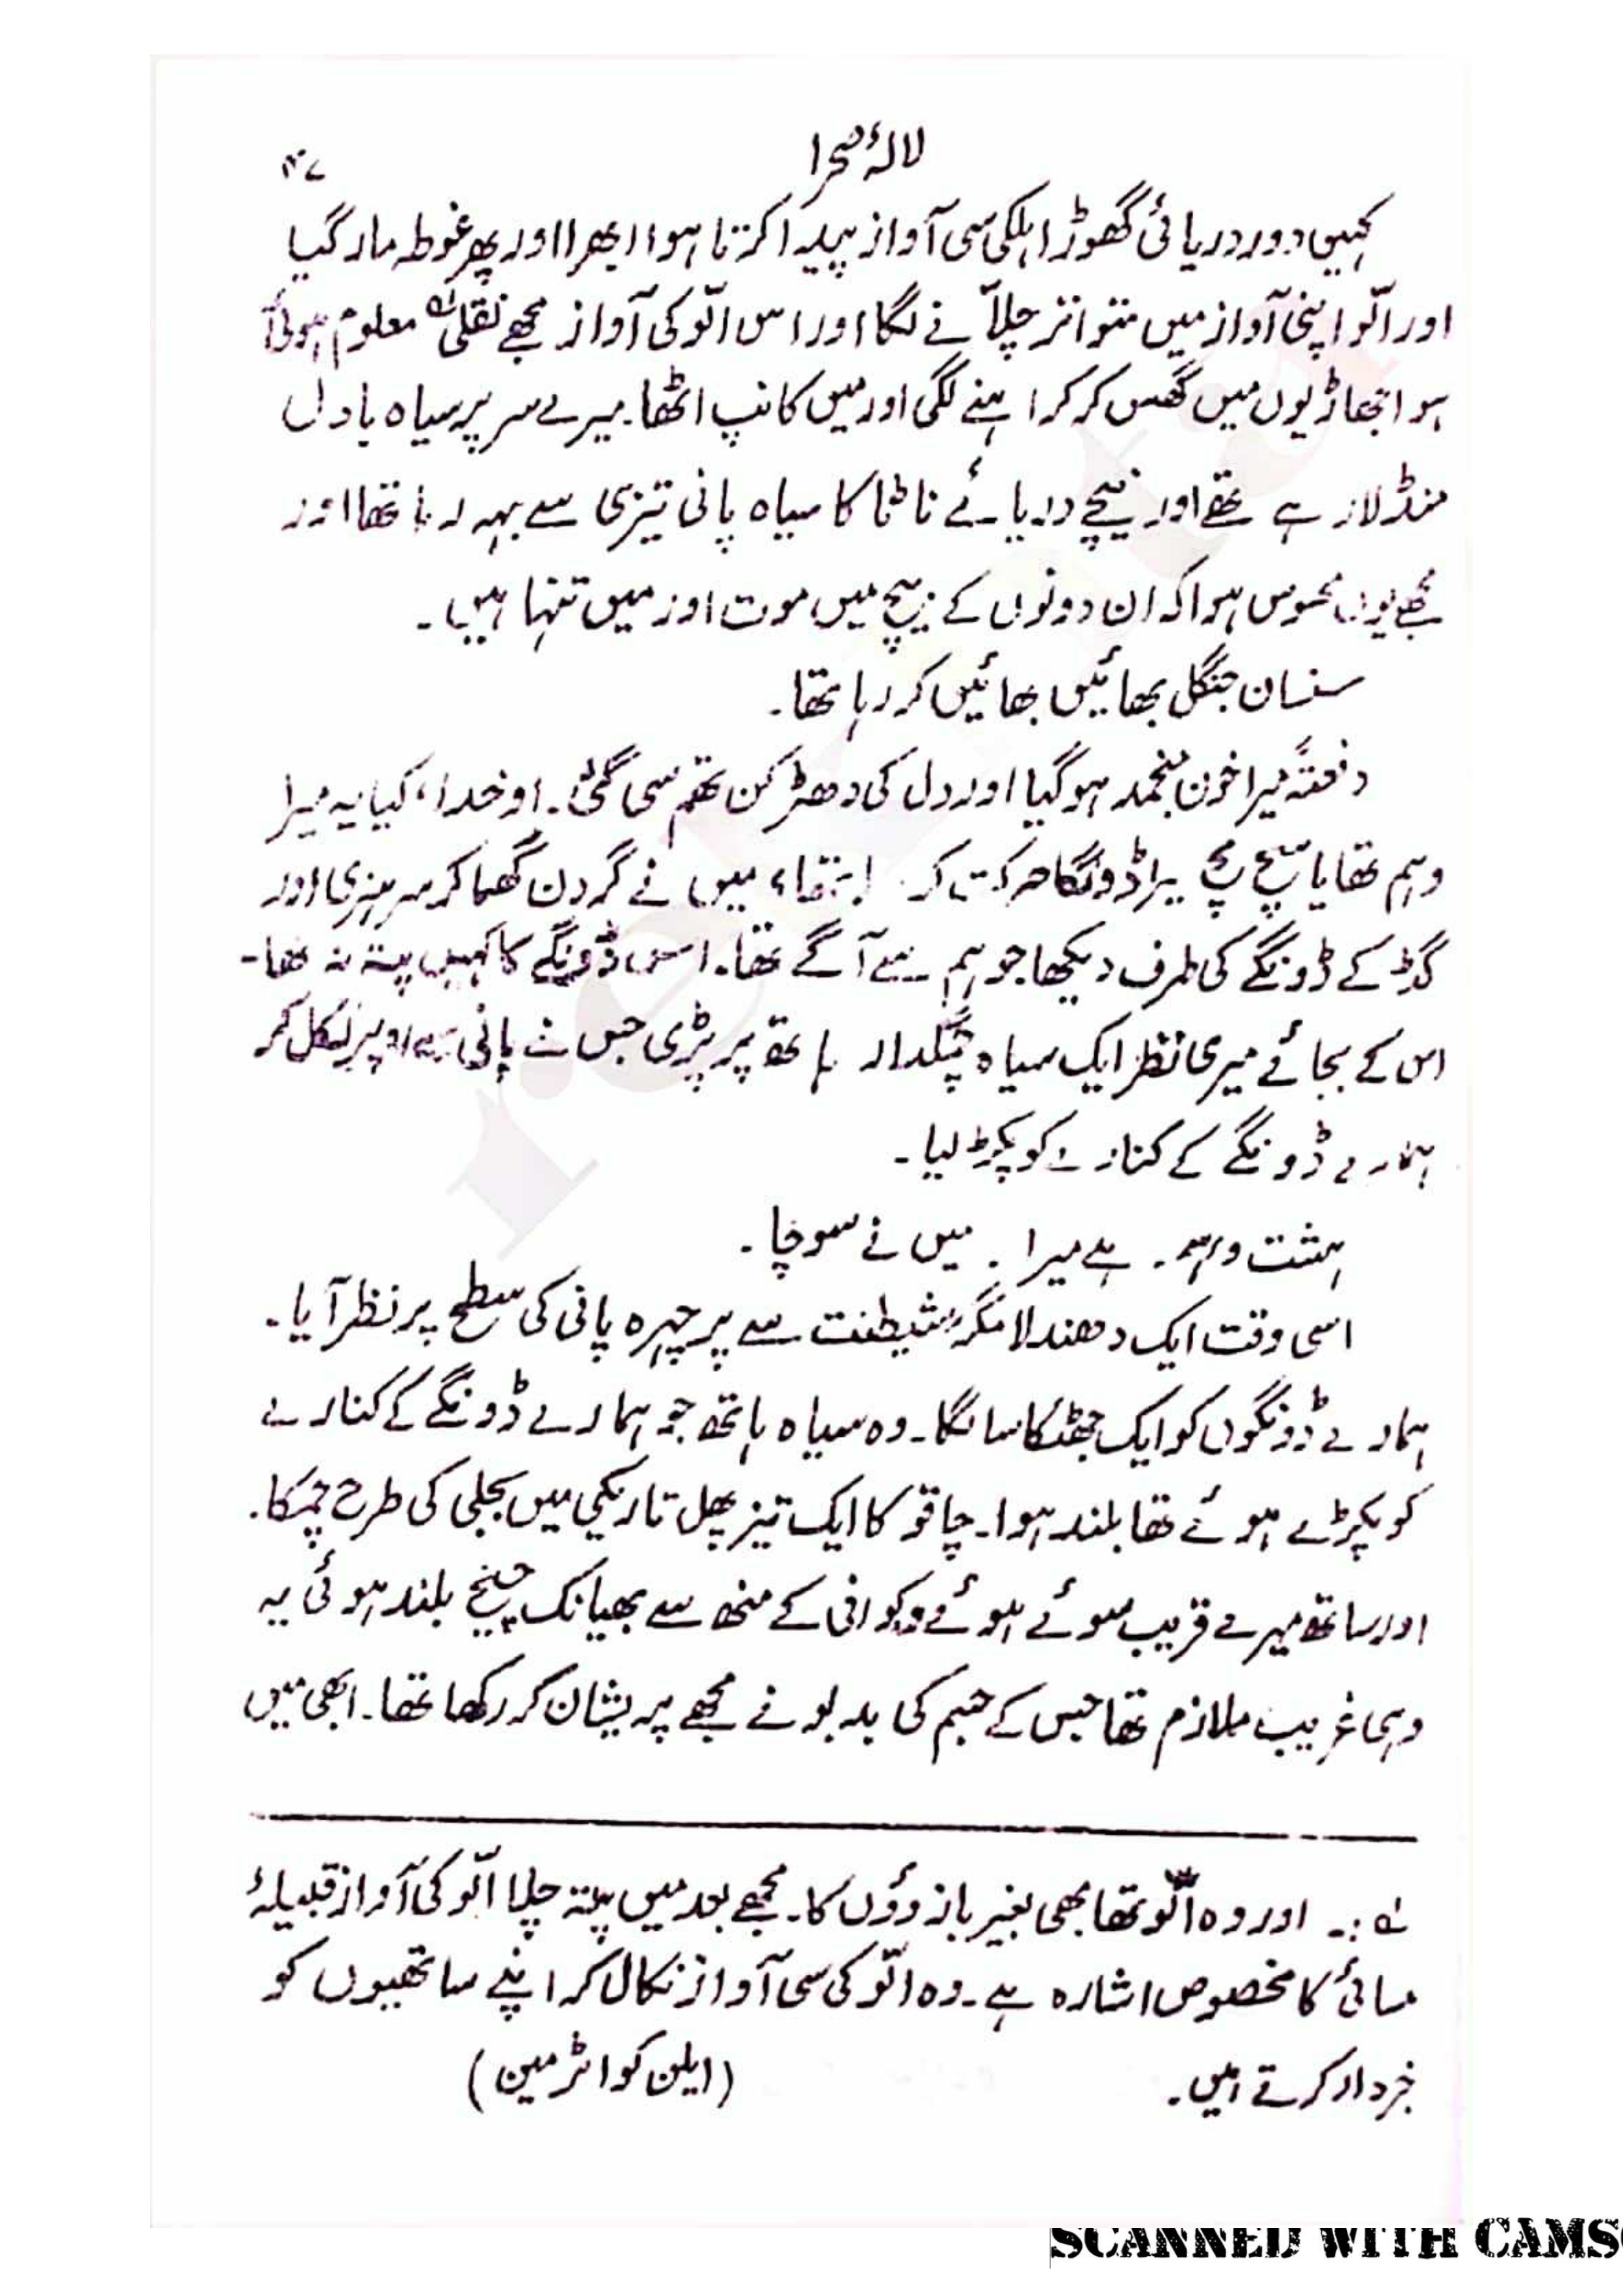 لالۂ صحرا
۴۷
کہیں دور دریائی گھوڑا ہلکی سی آواز پیدا کرتا ہوا ابھرا اور پھر غوطہ مار گیا
اور الّو اپنی آواز میں متواتر چلّانے لگا اور اس الّو کی آواز مجھے نقلی معلوم ہوئی۔
ہوا جھاڑیوں میں گھس کر کراہنے لگی اور میں کانپ اٹھا۔ میرے سر پر سیاہ بادل
منڈلا رہے تھے اور نیچے دریائے ٹانا کا سیاہ پانی تیزی سے بہہ رہا تھا اور
مجھے یوں محسوس ہوا کہ ان دونوں کے بیچ میں موت اور میں تنہا ہیں۔
سنسان جنگل بھائیں بھائیں کر رہا تھا۔
دفعتہً میرا خون منجمد ہو گیا اور دل کی دھڑکن تھم سی گئی۔ او خدا، کیا یہ میرا
وہم تھا یا سچ مچ میرا ڈونگا حرکت کر رہا تھا، میں نے گردن گھما کر سر ہنری اور
گڈ کے ڈونگے کی طرف دیکھا جو ہم سے آگے تھا۔ اس ڈونگے کا کہیں پتہ نہ تھا۔
اس کے بجائے میری نظر ایک سیاہ چمکدار ہاتھ پر پڑی جس نے پانی سے اوپر نکل کر
ہمارے ڈونگے کے کنارے کو پکڑ لیا۔
ہشت وہم۔ ہے میرا۔ میں نے سوچا۔
اسی وقت ایک دھندلا مگر شیطنت سے پر چہرہ پانی کی سطح پر نظر آیا۔
ہمارے ڈونگوں کو ایک جھٹکا سا لگا۔ وہ سیاہ ہاتھ جو ہمارے ڈونگے کے کنارے
کو پکڑے ہوئے تھا بلند ہوا۔ چاقو کا ایک تیز پھل تاریکی میں بجلی کی طرح چمکا۔
اور ساتھ میرے قریب سوئے ہوئے وکوافی کے منھ سے بھیانک چیخ بلند ہوئی یہ
وہی غریب ملازم تھا جس کے جسم کی بدبو نے مجھے پریشان کر رکھا تھا۔ ابھی میں
لہ :۔ اور وہ الّو تھا بھی بغیر بازوؤں کا۔ مجھے بعد میں پتہ چلا الّو کی آواز قبیلۂ
مسائی کا مخصوص اشارہ ہے۔ وہ الّو کی سی آواز نکال کر اپنے ساتھیوں کو
خبردار کرتے ہیں۔ (ایلن کوائرمین)
SCANNED WITH CAMS